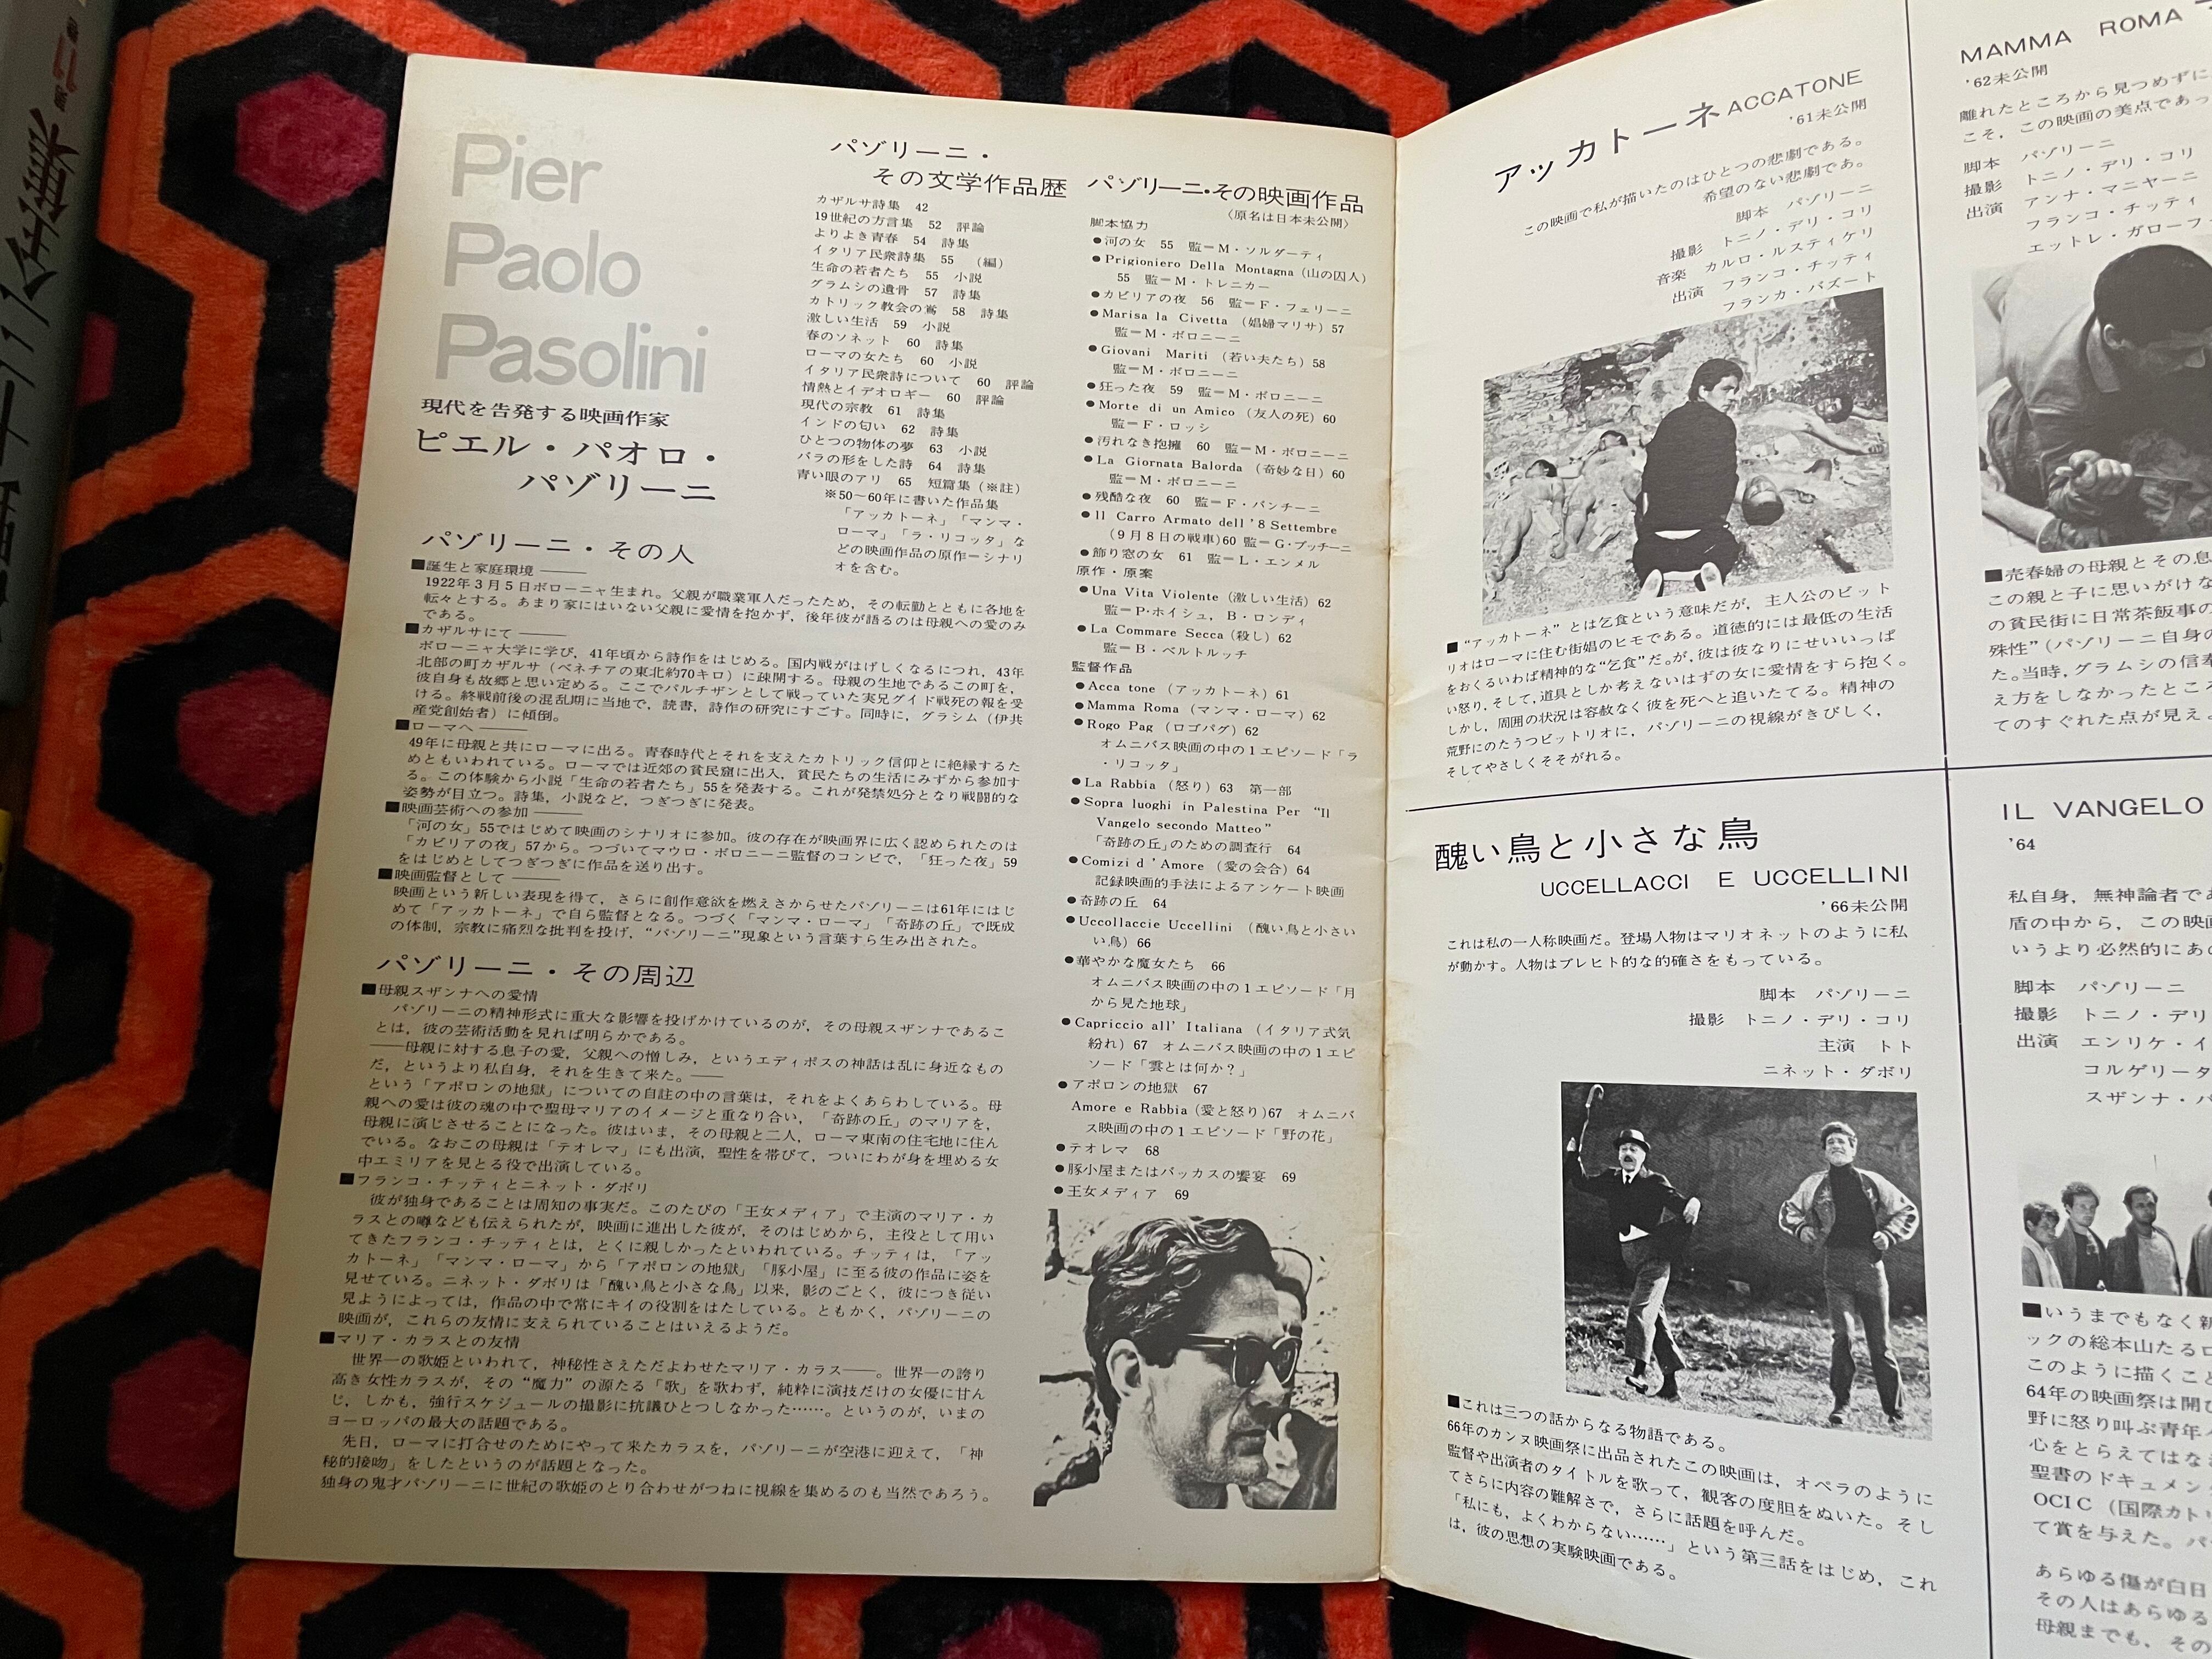 Pier
Paolo
Pasolini
現代を告発する映画作家
ピエル・パオロ・
パゾリーニ
パゾリーニ・その人
■誕生と家庭環境 ――
1922年3月5日ボローニャ生まれ。父親が職業軍人だったため，その転勤とともに各地を
転々とする。あまり家にはいない父親に愛情を抱かず，後年彼が語るのは母親への愛のみ
である。
■カザルサにて ――
ボローニャ大学に学び，41年頃から詩作をはじめる。国内戦がはげしくなるにつれ，43年
北部の町カザルサ（ベネチアの東北約70キロ）に疎開する。母親の生地であるこの町を，
彼自身も故郷と思い定める。ここでパルチザンとして戦っていた実兄グイド戦死の報を受
ける。終戦前後の混乱期に当地で，読書，詩作の研究にすごす。同時に，グラシム（伊共
産党創始者）に傾倒。
■ローマへ ――
49年に母親と共にローマに出る。青春時代とそれを支えたカトリック信仰とに絶縁するた
めともいわれている。ローマでは近郊の貧民窟に出入，貧民たちの生活にみずから参加す
る。この体験から小説「生命の若者たち」55を発表する。これが発禁処分となり戦闘的な
姿勢が目立つ。詩集，小説など，つぎつぎに発表。
■映画芸術への参加 ――
「河の女」55ではじめて映画のシナリオに参加。彼の存在が映画界に広く認められたのは
「カビリアの夜」57から。つづいてマウロ・ボロニーニ監督のコンビで，「狂った夜」59
をはじめとしてつぎつぎに作品を送り出す。
■映画監督として ――
映画という新しい表現を得て，さらに創作意欲を燃えさからせたパゾリーニは61年にはじ
めて「アッカトーネ」で自ら監督となる。つづく「マンマ・ローマ」「奇跡の丘」で既成
の体制，宗教に痛烈な批判を投げ，“パゾリーニ”現象という言葉すら生み出された。
パゾリーニ・その周辺
■母親スザンナへの愛情
パゾリーニの精神形式に重大な影響を投げかけているのが，その母親スザンナであるこ
とは，彼の芸術活動を見れば明らかである。
――母親に対する息子の愛，父親への憎しみ，というエディポスの神話は乱に身近なもの
だ，というより私自身，それを生きて来た。――
という「アポロンの地獄」についての自註の中の言葉は，それをよくあらわしている。母
親への愛は彼の魂の中で聖母マリアのイメージと重なり合い，「奇跡の丘」のマリアを，
母親に演じさせることになった。彼はいま，その母親と二人，ローマ東南の住宅地に住ん
でいる。なおこの母親は「テオレマ」にも出演，聖性を帯びて，ついにわが身を埋める女
中エミリアを見とる役で出演している。
■フランコ・チッティとニネット・ダボリ
彼が独身であることは周知の事実だ。このたびの「王女メディア」で主演のマリア・カ
ラスとの噂なども伝えられたが，映画に進出した彼が，そのはじめから，主役として用い
てきたフランコ・チッティとは，とくに親しかったといわれている。チッティは，「アッ
カトーネ」「マンマ・ローマ」から「アポロンの地獄」「豚小屋」に至る彼の作品に姿を
見せている。ニネット・ダボリは「醜い鳥と小さな鳥」以来，影のごとく，彼につき従い
見ようによっては，作品の中で常にキイの役割をはたしている。ともかく，パゾリーニの
映画が，これらの友情に支えられていることはいえるようだ。
■マリア・カラスとの友情
世界一の歌姫といわれて，神秘性さえただよわせたマリア・カラス――。世界一の誇り
高き女性カラスが，その“魔力”の源たる「歌」を歌わず，純粋に演技だけの女優に甘ん
じ，しかも，強行スケジュールの撮影に抗議ひとつしなかった……。というのが，いまの
ヨーロッパの最大の話題である。
先日，ローマに打合せのためにやって来たカラスを，パゾリーニが空港に迎えて，「神
秘的接吻」をしたというのが話題となった。
独身の鬼才パゾリーニに世紀の歌姫のとり合わせがつねに視線を集めるのも当然であろう。
パゾリーニ・
その文学作品歴
カザルサ詩集 42
19世紀の方言集 52 評論
よりよき青春 54 詩集
イタリア民衆詩集 55 （編）
生命の若者たち 55 小説
グラムシの遺骨 57 詩集
カトリック教会の鶯 58 詩集
激しい生活 59 小説
春のソネット 60 詩集
ローマの女たち 60 小説
イタリア民衆詩について 60 評論
情熱とイデオロギー 60 評論
現代の宗教 61 詩集
インドの匂い 62 詩集
ひとつの物体の夢 63 小説
バラの形をした詩 64 詩集
青い眼のアリ 65 短篇集（※註）
※50～60年に書いた作品集
「アッカトーネ」「マンマ・
ローマ」「ラ・リコッタ」な
どの映画作品の原作＝シナリ
オを含む。
パゾリーニ・その映画作品
〈原名は日本未公開〉
脚本協力
●河の女 55 監＝M・ソルダーティ
●Prigioniero Della Montagna（山の囚人）
55 監＝M・トレニカー
●カビリアの夜 56 監＝F・フェリーニ
●Marisa la Civetta （娼婦マリサ）57
監＝M・ボロニーニ
●Giovani Mariti （若い夫たち）58
監＝M・ボロニーニ
●狂った夜 59 監＝M・ボロニーニ
●Morte di un Amico （友人の死）60
監＝F・ロッシ
●汚れなき抱擁 60 監＝M・ボロニーニ
●La Giornata Balorda （奇妙な日）60
監＝M・ボロニーニ
●残酷な夜 60 監＝F・バンチーニ
●Il Carro Armato dell'8 Settembre
（9月8日の戦車）60 監＝G・プッチーニ
●飾り窓の女 61 監＝L・エンメル
原作・原案
●Una Vita Violente（激しい生活）62
監＝P・ホイシュ，B・ロンディ
●La Commare Secca（殺し）62
監＝B・ベルトルッチ
監督作品
●Acca tone （アッカトーネ）61
●Mamma Roma（マンマ・ローマ）62
●Rogo Pag（ロゴパグ）62
オムニバス映画の中の1エピソード「ラ
・リコッタ」
●La Rabbia （怒り）63 第一部
●Sopra luoghi in Palestina Per “Il
Vangelo secondo Matteo”
「奇跡の丘」のための調査行 64
●Comizi d'Amore （愛の会合）64
記録映画的手法によるアンケート映画
●奇跡の丘 64
●Uccollaccie Uccellini （醜い鳥と小さい
い鳥）66
●華やかな魔女たち 66
オムニバス映画の中の1エピソード「月
から見た地球」
●Capriccio all' Italiana （イタリア式気
紛れ）67 オムニバス映画の中の1エピ
ソード「雲とは何か？」
●アポロンの地獄 67
Amore e Rabbia（愛と怒り）67 オムニバ
ス映画の中の1エピソード「野の花」
●テオレマ 68
●豚小屋またはバッカスの饗宴 69
●王女メディア 69
アッカトーネ ACCATONE
'61未公開
この映画で私が描いたのはひとつの悲劇である。
希望のない悲劇であ。
脚本 パゾリーニ
撮影 トニノ・デリ・コリ
音楽 カルロ・ルスティケリ
出演 フランコ・チッティ
フランカ・パズート
■“アッカトーネ”とは乞食という意味だが，主人公のビット
リオはローマに住む街娼のヒモである。道徳的には最低の生活
をおくるいわば精神的な“乞食”だ。が，彼は彼なりにせいいっぱ
い怒り，そして，道具としか考えないはずの女に愛情をすら抱く。
しかし，周囲の状況は容赦なく彼を死へと追いたてる。精神の
荒野にのたうつビットリオに，パゾリーニの視線がきびしく，
そしてやさしくそそがれる。
醜い鳥と小さな鳥
UCCELLACCI E UCCELLINI
'66未公開
これは私の一人称映画だ。登場人物はマリオネットのように私
が動かす。人物はブレヒト的な的確さをもっている。
脚本 パゾリーニ
撮影 トニノ・デリ・コリ
主演 トト
ニネット・ダボリ
■これは三つの話からなる物語である。
66年のカンヌ映画祭に出品されたこの映画は，オペラのように
監督や出演者のタイトルを歌って，観客の度胆をぬいた。そし
てさらに内容の難解さで，さらに話題を呼んだ。
「私にも，よくわからない……」という第三話をはじめ，これ
は，彼の思想の実験映画である。
MAMMA ROMA
'62未公開
離れたところから見つめずに
こそ，この映画の美点であっ
脚本 パゾリーニ
撮影 トニノ・デリ・コリ
出演 アンナ・マニヤーニ
フランコ・チッティ
エットレ・ガローフ
■売春婦の母親とその息
この親と子に思いがけな
の貧民街に日常茶飯事の
殊性”（パゾリーニ自身の
た。当時，グラムシの信奉
え方をしなかったところ
てのすぐれた点が見え
IL VANGELO
'64
私自身，無神論者であ
盾の中から，この映画
いうより必然的にあ
脚本 パゾリーニ
撮影 トニノ・デリ
出演 エンリケ・イ
コルゲリータ
スザンナ・パ
■いうまでもなく新
ックの総本山たるロ
このように描くこと
64年の映画祭は開び
野に怒り叫ぶ青年
心をとらえてはな
聖書のドキュメン
OCIC（国際カト
て賞を与えた。パ
あらゆる傷が白日
その人はあらゆる
母親までも，その